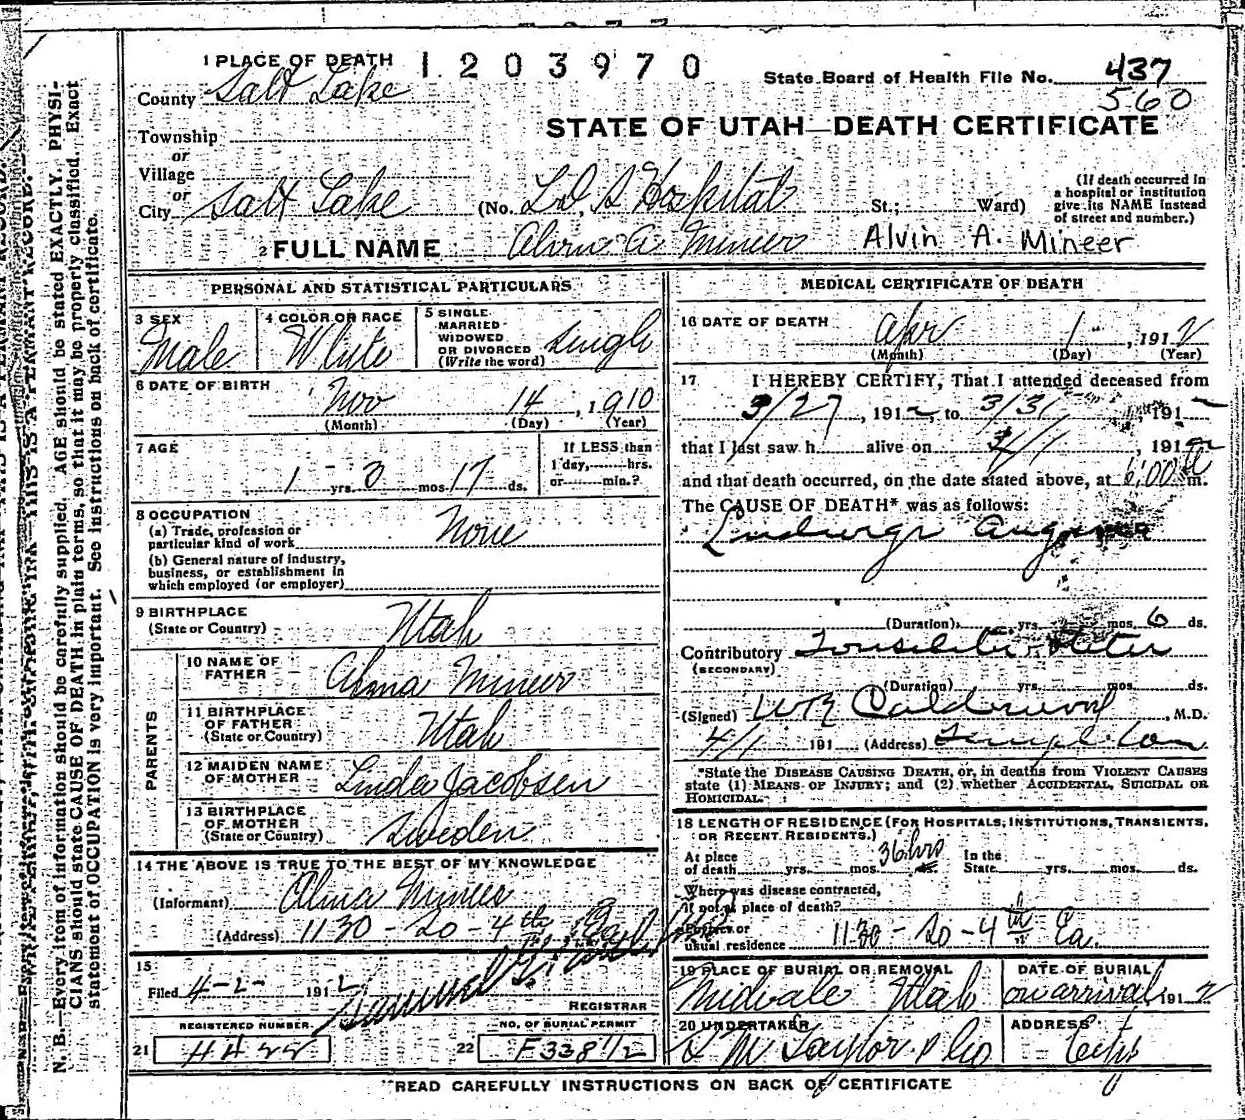 1203970
1 PLACE OF DEATH
State Board of Health File No. 437
560
County Salt Lake
STATE OF UTAH—DEATH CERTIFICATE
Township
or
Village
or
City Salt Lake (No. L.D.S Hospital St.; Ward) (If death occurred in a hospital or institution give its NAME instead of street and number.)
2 FULL NAME Alvin A Mineer Alvin A. Mineer
PERSONAL AND STATISTICAL PARTICULARS
3 SEX Male
4 COLOR OR RACE White
5 SINGLE MARRIED WIDOWED OR DIVORCED (Write the word) Single
6 DATE OF BIRTH Nov 14, 1910
(Month) (Day) (Year)
7 AGE 1 yrs. 3 mos. 17 ds.
If LESS than 1 day, hrs. or min.?
8 OCCUPATION
(a) Trade, profession or particular kind of work None
(b) General nature of industry, business, or establishment in which employed (or employer)
9 BIRTHPLACE (State or Country) Utah
PARENTS
10 NAME OF FATHER Alma Mineer
11 BIRTHPLACE OF FATHER (State or Country) Utah
12 MAIDEN NAME OF MOTHER Linda Jacobsen
13 BIRTHPLACE OF MOTHER (State or Country) Sweden
14 THE ABOVE IS TRUE TO THE BEST OF MY KNOWLEDGE
(Informant) Alma Mineer
(Address) 1130 - 20 - 4th East
15
Filed 4-2- 1912
REGISTRAR
REGISTERED NUMBER
21 H422
NO. OF BURIAL PERMIT
22 F338 1/2
MEDICAL CERTIFICATE OF DEATH
16 DATE OF DEATH Apr 1, 1912
(Month) (Day) (Year)
17 I HEREBY CERTIFY, That I attended deceased from
3/27, 1912, to 3/31, 191
that I last saw h alive on 3/1, 1912
and that death occurred, on the date stated above, at 6:00 m.
The CAUSE OF DEATH* was as follows:
(Duration) yrs. mos. 6 ds.
Contributory
(SECONDARY)
(Duration) yrs. mos. ds.
(Signed) Calderwood, M.D.
4/1 191 (Address)
*State the DISEASE CAUSING DEATH, or, in deaths from VIOLENT CAUSES
state (1) MEANS OF INJURY; and (2) whether ACCIDENTAL, SUICIDAL OR
HOMICIDAL.
18 LENGTH OF RESIDENCE (FOR HOSPITALS, INSTITUTIONS, TRANSIENTS, OR RECENT RESIDENTS.)
At place of death yrs. mos. 36 hrs ds. In the State yrs. mos. ds.
Where was disease contracted,
if not at place of death?
Former or usual residence 1130 - 20 - 4th Ea.
19 PLACE OF BURIAL OR REMOVAL Midvale Utah
DATE OF BURIAL on arrival 1912
20 UNDERTAKER S M Taylor & Co
ADDRESS City
*READ CAREFULLY INSTRUCTIONS ON BACK OF CERTIFICATE
N. B.—Every item of information should be carefully supplied. AGE should be stated EXACTLY. PHYSI-
CIANS should state CAUSE OF DEATH in plain terms, so that it may be properly classified. Exact
statement of OCCUPATION is very important. See instructions on back of certificate.